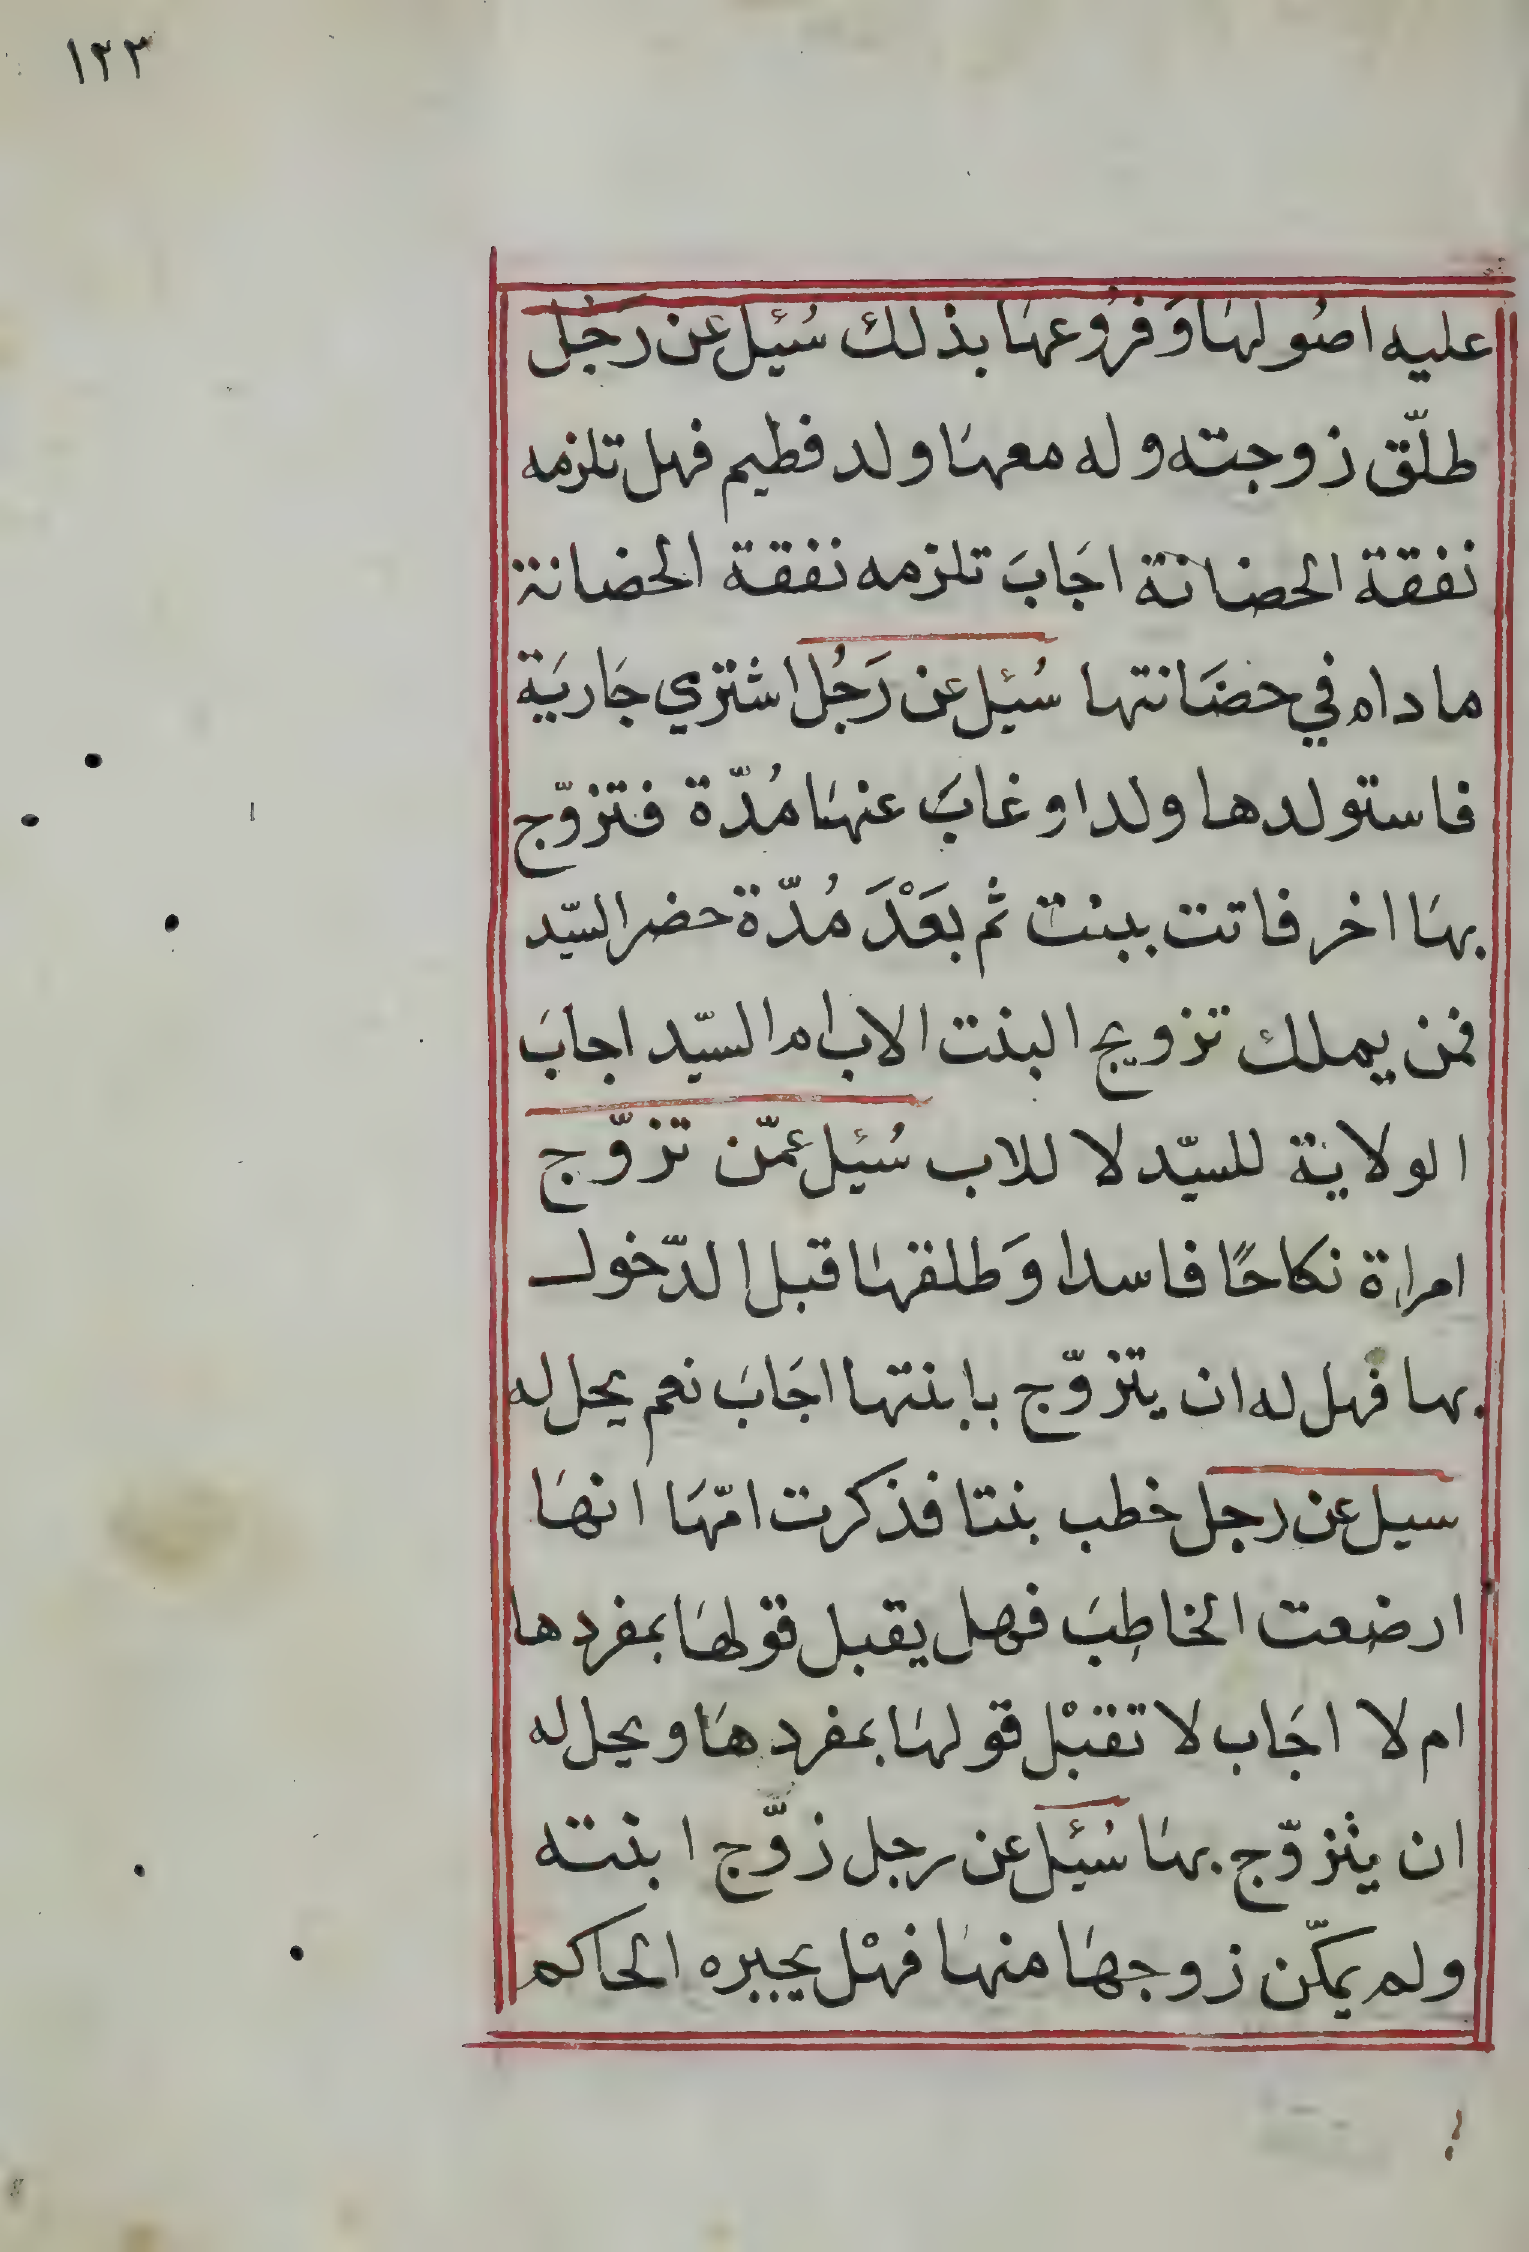 ١٢٣
عليه اصُولهَا وَفرُوعهَا بذلك سُئِل عن رَجُل
طلّق زوجته وله معهَا ولد فطيم فهل تلزمه
نفقة الحضانة اجَابَ تلزمه نفقة الحضانة
ما دام في حضَانتها سُئِل عن رَجُل اشتري جَاريَة
فاستولدها ولدا وغابَ عنهَا مُدّة فتزوّج
بهَا اخر فاتت ببنت ثم بعَدْ مُدّة حضر السيّد
فمن يملك تزويج البنت الاب ام السيّد اجابَ
الولاية للسيّد لا للاب سُئِل عمّن تزوّج
امراة نكاحًا فاسدا وَطلقهَا قبل الدّخول
بها فهل له ان يتزوّج بابنتها اجَابَ نعم يحل له
سيل عن رجل خطب بنتا فذكرت امّهَا انهَا
ارضعت الخاطبَ فهل يقبل قولهَا بمفردها
ام لا اجَاب لا تقبْل قولهَا بمفردهَا ويحل له
ان يتزوّج بهَا سُئِل عن رجل زوّج ابنته
ولم يمكّن زوجهَا منهَا فهْل يجبره الحاكم